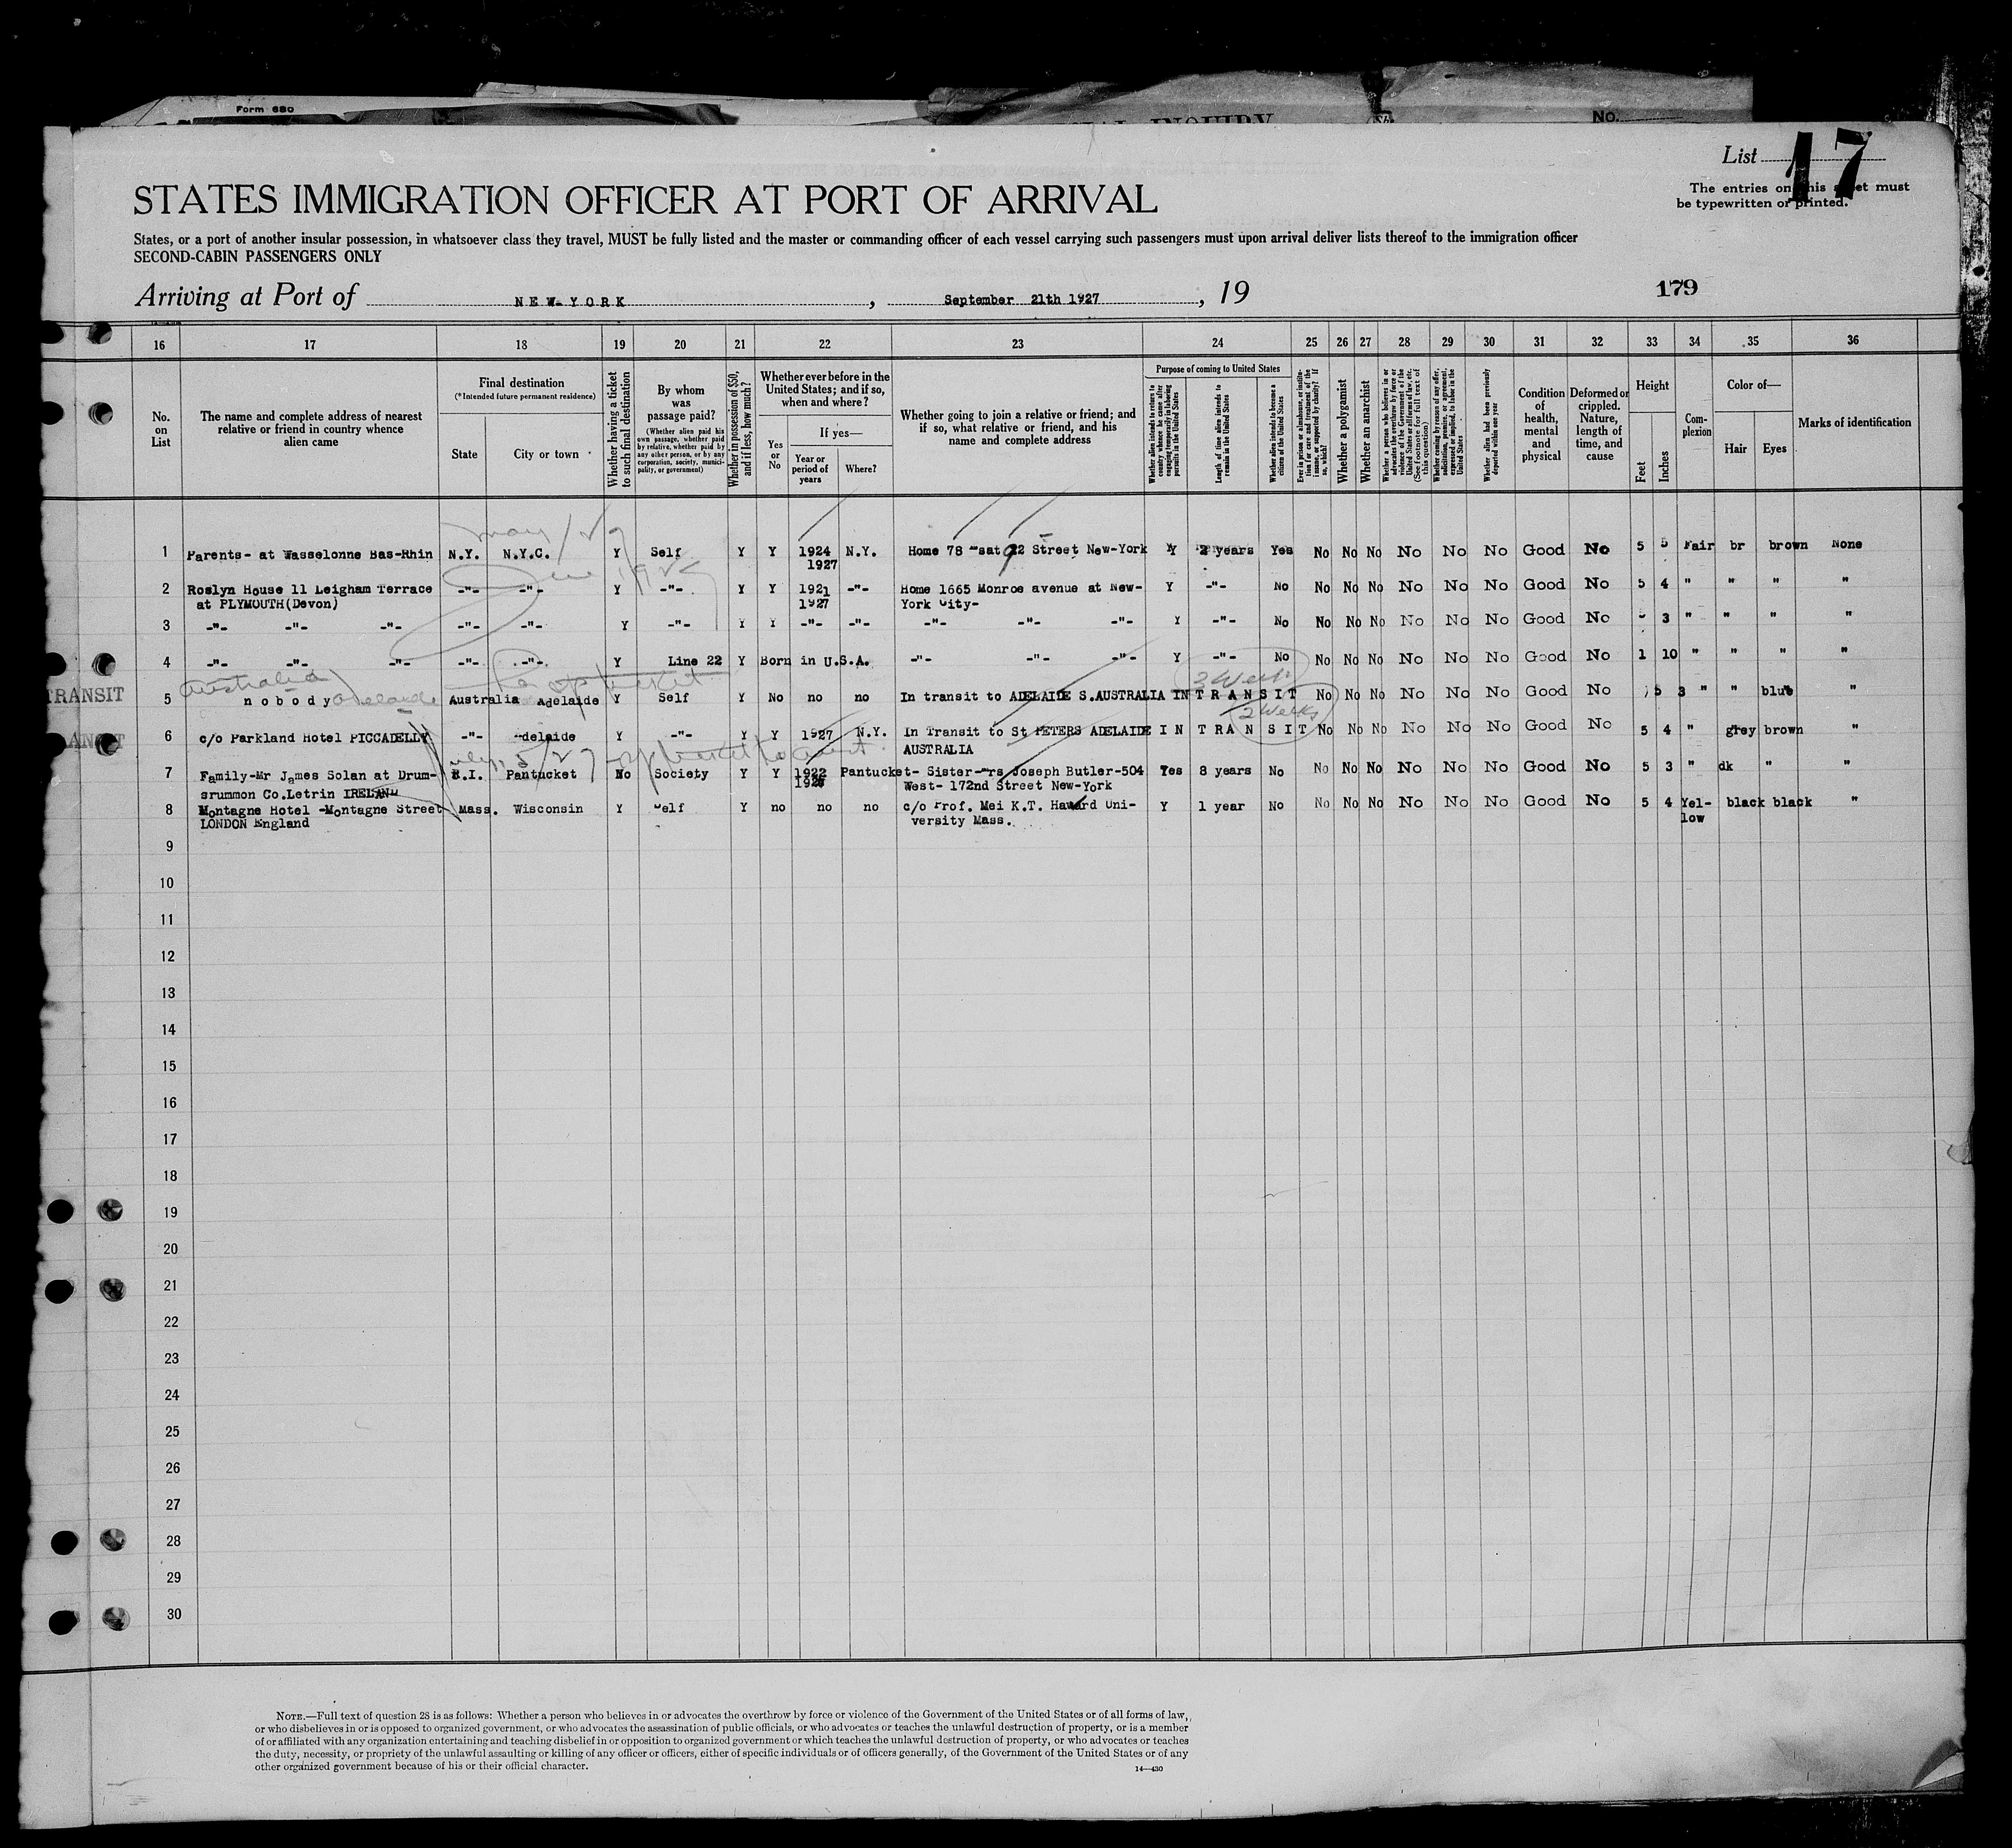 Form 680
No.
List 17
The entries on this sheet must
be typewritten or printed.
STATES IMMIGRATION OFFICER AT PORT OF ARRIVAL
States, or a port of another insular possession, in whatsoever class they travel, MUST be fully listed and the master or commanding officer of each vessel carrying such passengers must upon arrival deliver lists thereof to the immigration officer
SECOND-CABIN PASSENGERS ONLY
Arriving at Port of NEW-YORK, September 21th 1927, 19
179
16 17 18 19 20 21 22 23 24 25 26 27 28 29 30 31 32 33 34 35 36
No. on List
The name and complete address of nearest relative or friend in country whence alien came
Final destination (*Intended future permanent residence)
State
City or town
Whether having a ticket to such final destination
By whom was passage paid? (Whether alien paid his own passage, whether paid by relative, whether paid by any other person, or by any corporation, society, municipality, or government)
Whether in possession of $50, and if less, how much?
Whether ever before in the United States; and if so, when and where?
Yes or No
If yes—
Year or period of years
Where?
Whether going to join a relative or friend; and if so, what relative or friend, and his name and complete address
Purpose of coming to United States
Whether alien intends to return to country whence he came after engaging temporarily in laboring pursuits in the United States
Length of time alien intends to remain in the United States
Whether alien intends to become a citizen of the United States
Ever in prison or almshouse, or institution for care and treatment of the insane, or supported by charity? If so, which?
Whether a polygamist
Whether an anarchist
Whether a person who believes in or advocates the overthrow by force or violence of the Government of the United States or all forms of law, etc. (See footnote for full text of this question)
Whether coming by reason of any offer, solicitation, promise, or agreement, expressed or implied, to labor in the United States
Whether alien had been previously deported within one year
Condition of health, mental and physical
Deformed or crippled. Nature, length of time, and cause
Height
Feet
Inches
Complexion
Color of—
Hair
Eyes
Marks of identification
1 Parents- at Wasselonne Bas-Rhin N.Y. N.Y.C. Y Self Y Y 1924 N.Y. Home 78 22 Street New-York Y 2 years Yes No No No No No No Good No 5 5 Fair br brown None
1927
2 Roslyn House 11 Leigham Terrace -"- -"- Y -"- Y Y 1921 -"- Home 1665 Monroe avenue at New- Y -"- No No No No No No No Good No 5 4 " " " "
at PLYMOUTH(Devon) 1927 York City-
3 -"- -"- -"- -"- -"- Y -"- Y Y -"- -"- -"- -"- -"- Y -"- No No No No No No No Good No 3 " " " "
4 -"- -"- -"- -"- -"- Y Line 22 Y Born in U.S.A. -"- -"- -"- Y -"- No No No No No No No Good No 1 10 " " " "
Australia
3 Weeks
TRANSIT
5 nobody Adelaide Australia Adelaide Y Self Y No no no In transit to ADELAIDE S.AUSTRALIA IN TRANSIT No No No No No No Good No 5 3 " " blue "
2 Weeks
6 c/o Parkland Hotel PICCADELLY -"- Adelaide Y -"- Y Y 1927 N.Y. In Transit to St PETERS ADELAIDE IN TRANSIT No No No No No No Good No 5 4 " grey brown "
AUSTRALIA
7 Family-Mr James Solan at Drum- R.I. Pantucket No Society Y Y 1922 Pantucket- Sister-Mrs Joseph Butler-504 Yes 8 years No No No No No No No Good No 5 3 " dk " "
srummon Co.Letrin IRELAND West- 172nd Street New-York
8 Montagne Hotel -Montagne Street Mass. Wisconsin Y Self Y no no no c/o Prof. Mei K.T. Haward Uni- Y 1 year No No No No No No No Good No 5 4 Yel- black black "
LONDON England versity Mass. low
9
10
11
12
13
14
15
16
17
18
19
20
21
22
23
24
25
26
27
28
29
30
NOTE.—Full text of question 28 is as follows: Whether a person who believes in or advocates the overthrow by force or violence of the Government of the United States or of all forms of law,
or who disbelieves in or is opposed to organized government, or who advocates the assassination of public officials, or who advocates or teaches the unlawful destruction of property, or is a member
of or affiliated with any organization entertaining and teaching disbelief in or opposition to organized government or which teaches the unlawful destruction of property, or who advocates or teaches
the duty, necessity, or propriety of the unlawful assaulting or killing of any officer or officers, either of specific individuals or of officers generally, of the Government of the United States or of any
other organized government because of his or their official character.
14—430